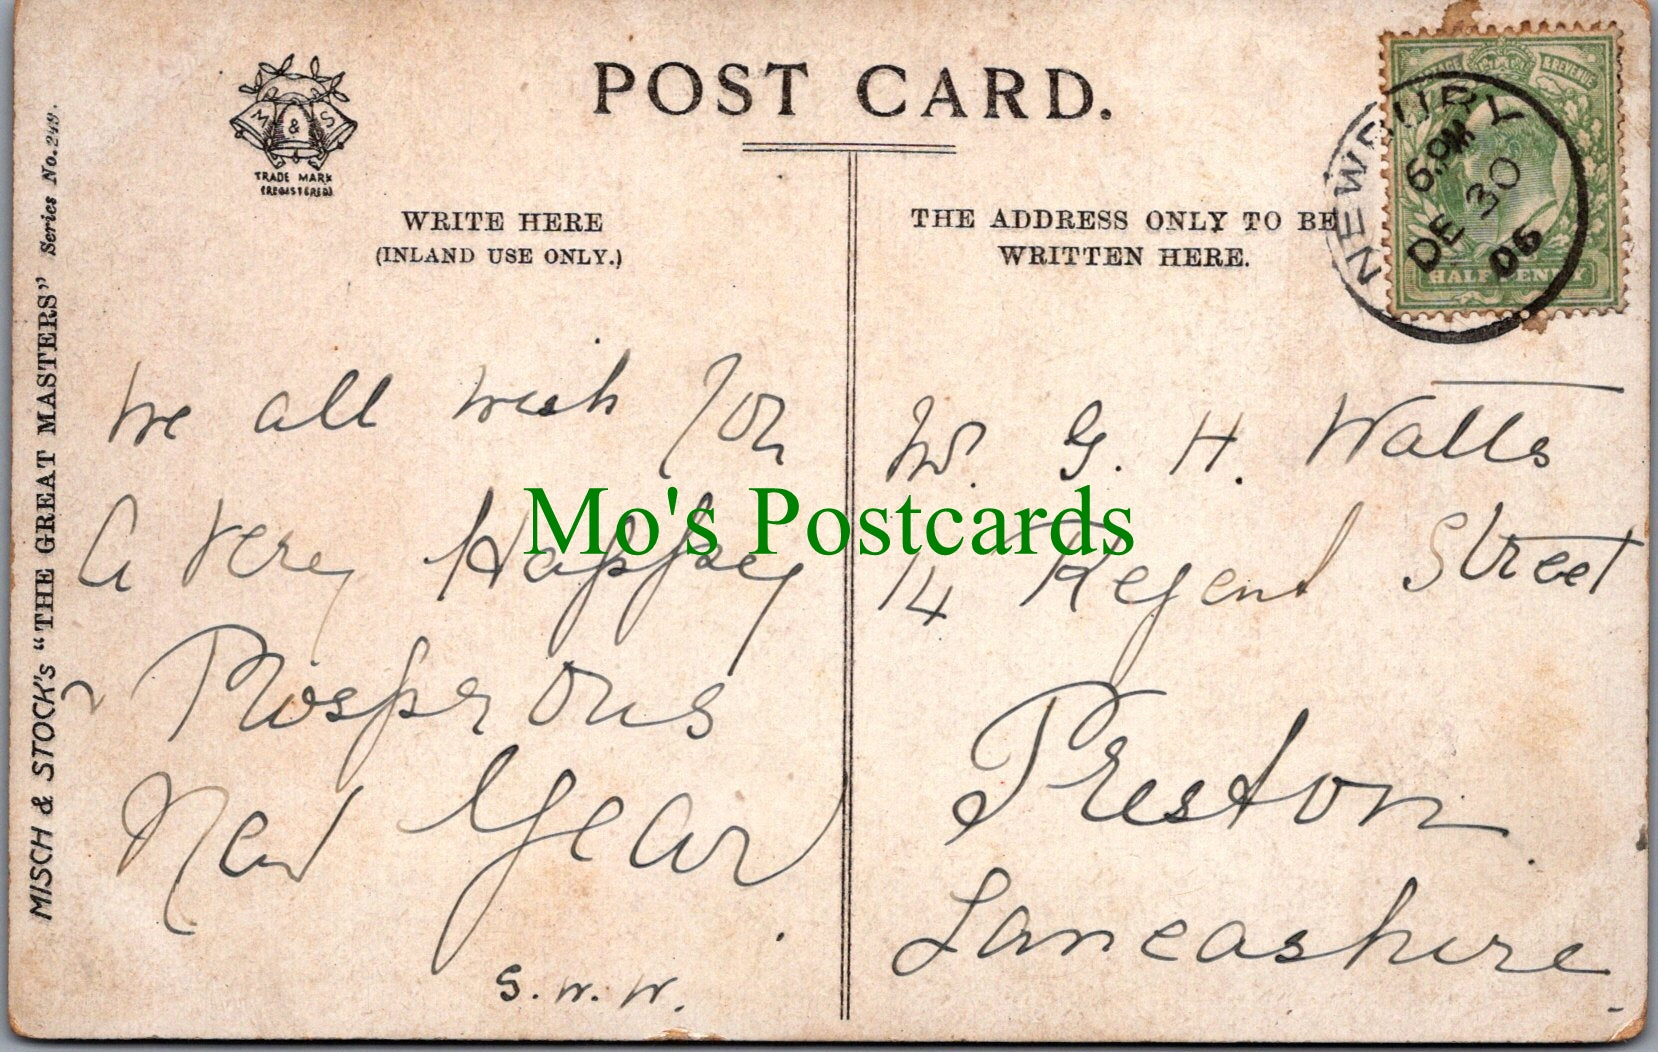 POST CARD.
M & S
TRADE MARK
(REGISTERED)
WRITE HERE
(INLAND USE ONLY.)
THE ADDRESS ONLY TO BE
WRITTEN HERE.
POSTAGE & REVENUE
HALFPENNY
NEWBURY
6.PM
DE 30
06
MISCH & STOCK's "THE GREAT MASTERS" Series No. 249.
We all wish you
a very Happy
& Prosperous
New Year.
S. W. W.
Mr. G. H. Watts
14 Regent Street
Preston
Lancashire
Mo's Postcards